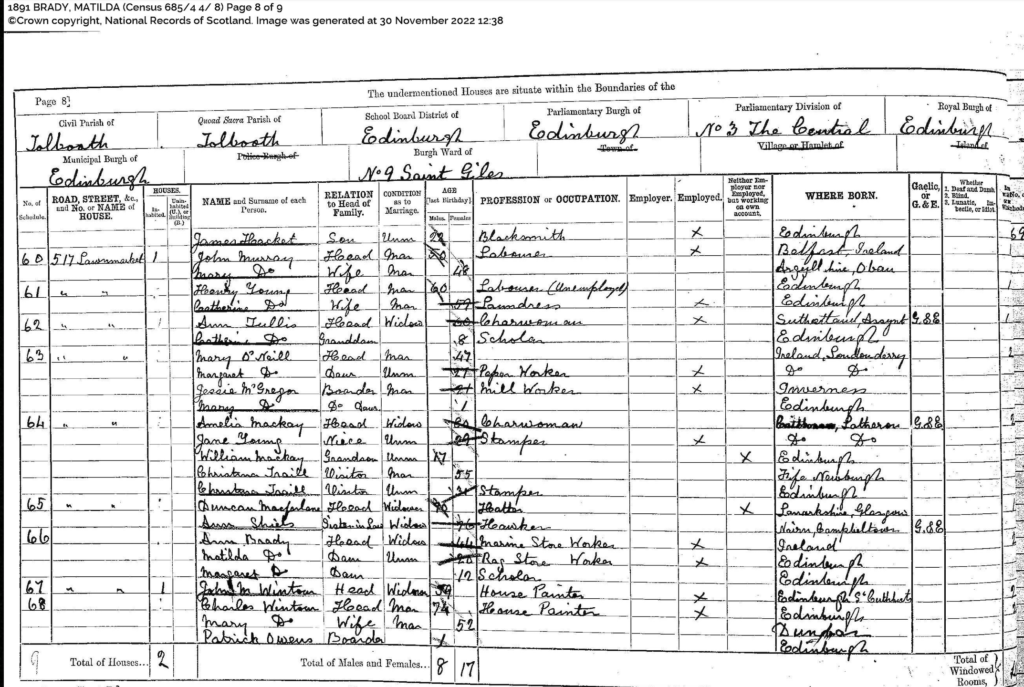 1891 BRADY, MATILDA (Census 685/4 4/ 8) Page 8 of 9
©Crown copyright, National Records of Scotland. Image was generated at 30 November 2022 12:38
The undermentioned Houses are situate within the Boundaries of the
Page 8]
Civil Parish of Quoad Sacra Parish of School Board District of Parliamentary Burgh of Parliamentary Division of Royal Burgh of
Tolbooth Tolbooth Edinburgh Edinburgh No 3 The Central Edinburgh
Municipal Burgh of Police Burgh of Burgh Ward of Town of Village or Hamlet of Island of
Edinburgh No 9 Saint Giles
No. of Schedule. ROAD, STREET, &c., and No. or NAME of HOUSE. HOUSES. Inhabited. Uninhabited (U.), or Building (B.) NAME and Surname of each Person. RELATION to Head of Family. CONDITION as to Marriage. AGE [last Birthday]. Males. Females. PROFESSION or OCCUPATION. Employer. Employed. Neither Employer nor Employed, but working on own account. WHERE BORN. Gaelic, or G. & E. Whether 1. Deaf and Dumb 2. Blind 3. Lunatic, Imbecile, or Idiot.
James Hacket Son Unm 22 Blacksmith X Edinburgh
60 517 Lawnmarket 1 John Murray Head Mar 50 Labourer X Belfast Ireland
Mary Do Wife Mar 48 Argyllshire, Oban
61 " " Henry Young Head Mar 60 Labourer (Unemployed) Edinburgh
Catherine Do Wife Mar 59 Laundress X Edinburgh
62 " " Ann Tullis Head Widow 60 Charwoman X Sutherland G&E
Catherine Do Granddau 8 Scholar Edinburgh
63 " " Mary O'Neill Head Mar 47 Ireland, Londonderry
Margaret Do Daur Unm 21 Paper Worker X Do Do
Jessie McGregor Boarder Mar 21 Mill Worker X Inverness
Mary Do Do Daur 1 Edinburgh
64 " " Amelia Mackay Head Widow Charwoman Latheron G&E
Jane Young Niece Unm 29 Stamper X Do Do
William Mackay Grandson Unm 17 X Edinburgh
Christina Traill Visitor Mar 55 Fife Newburgh
Christina Traill Visitor Unm Stamper Edinburgh
65 " " Duncan Macfarlane Head Widower Hatter X Lanarkshire, Glasgow
Ann Shiels Sister in Law Widow 76 Hawker Nairn, Campbeltown G&E
66 Ann Brady Head Widow 44 Marine Store Worker X Ireland
Matilda Do Daur Unm 20 Rag Store Worker X Edinburgh
Margaret Do Daur 12 Scholar Edinburgh
67 " " 1 John M Wintour Head Widower 39 House Painter X Edinburgh St Cuthberts
68 Charles Wintour Head Mar 74 House Painter X Edinburgh
Mary Do Wife Mar 52 Dunbar
Patrick Owens Boarder X Edinburgh
9 Total of Houses... 2 Total of Males and Females... 8 17 Total of Windowed Rooms,